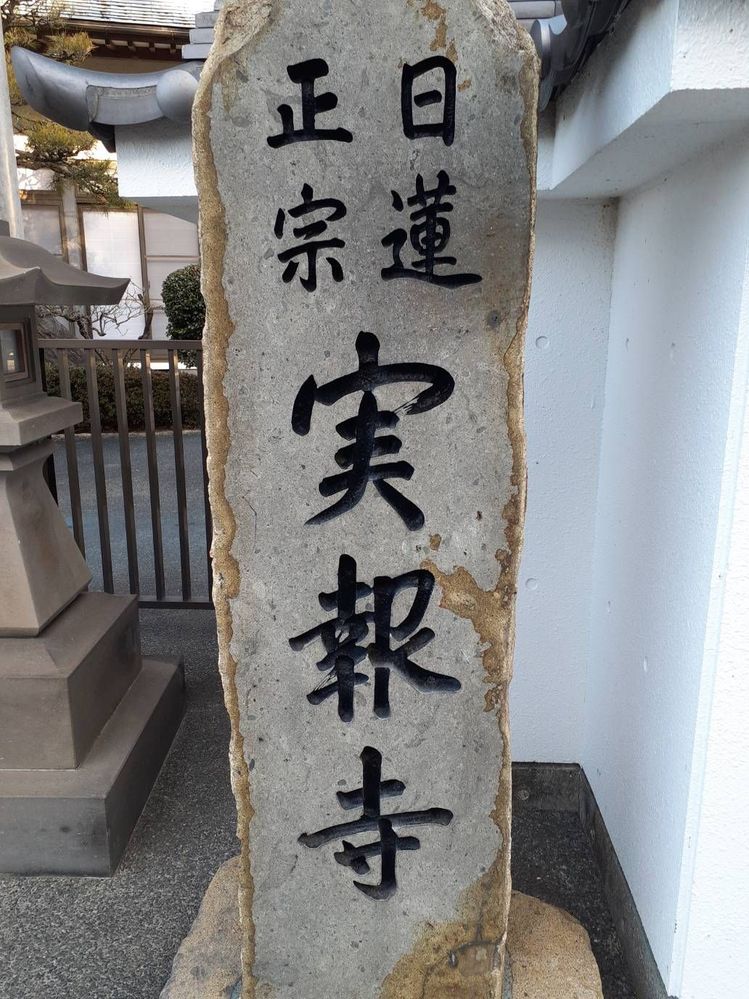 日蓮
正宗
実報寺